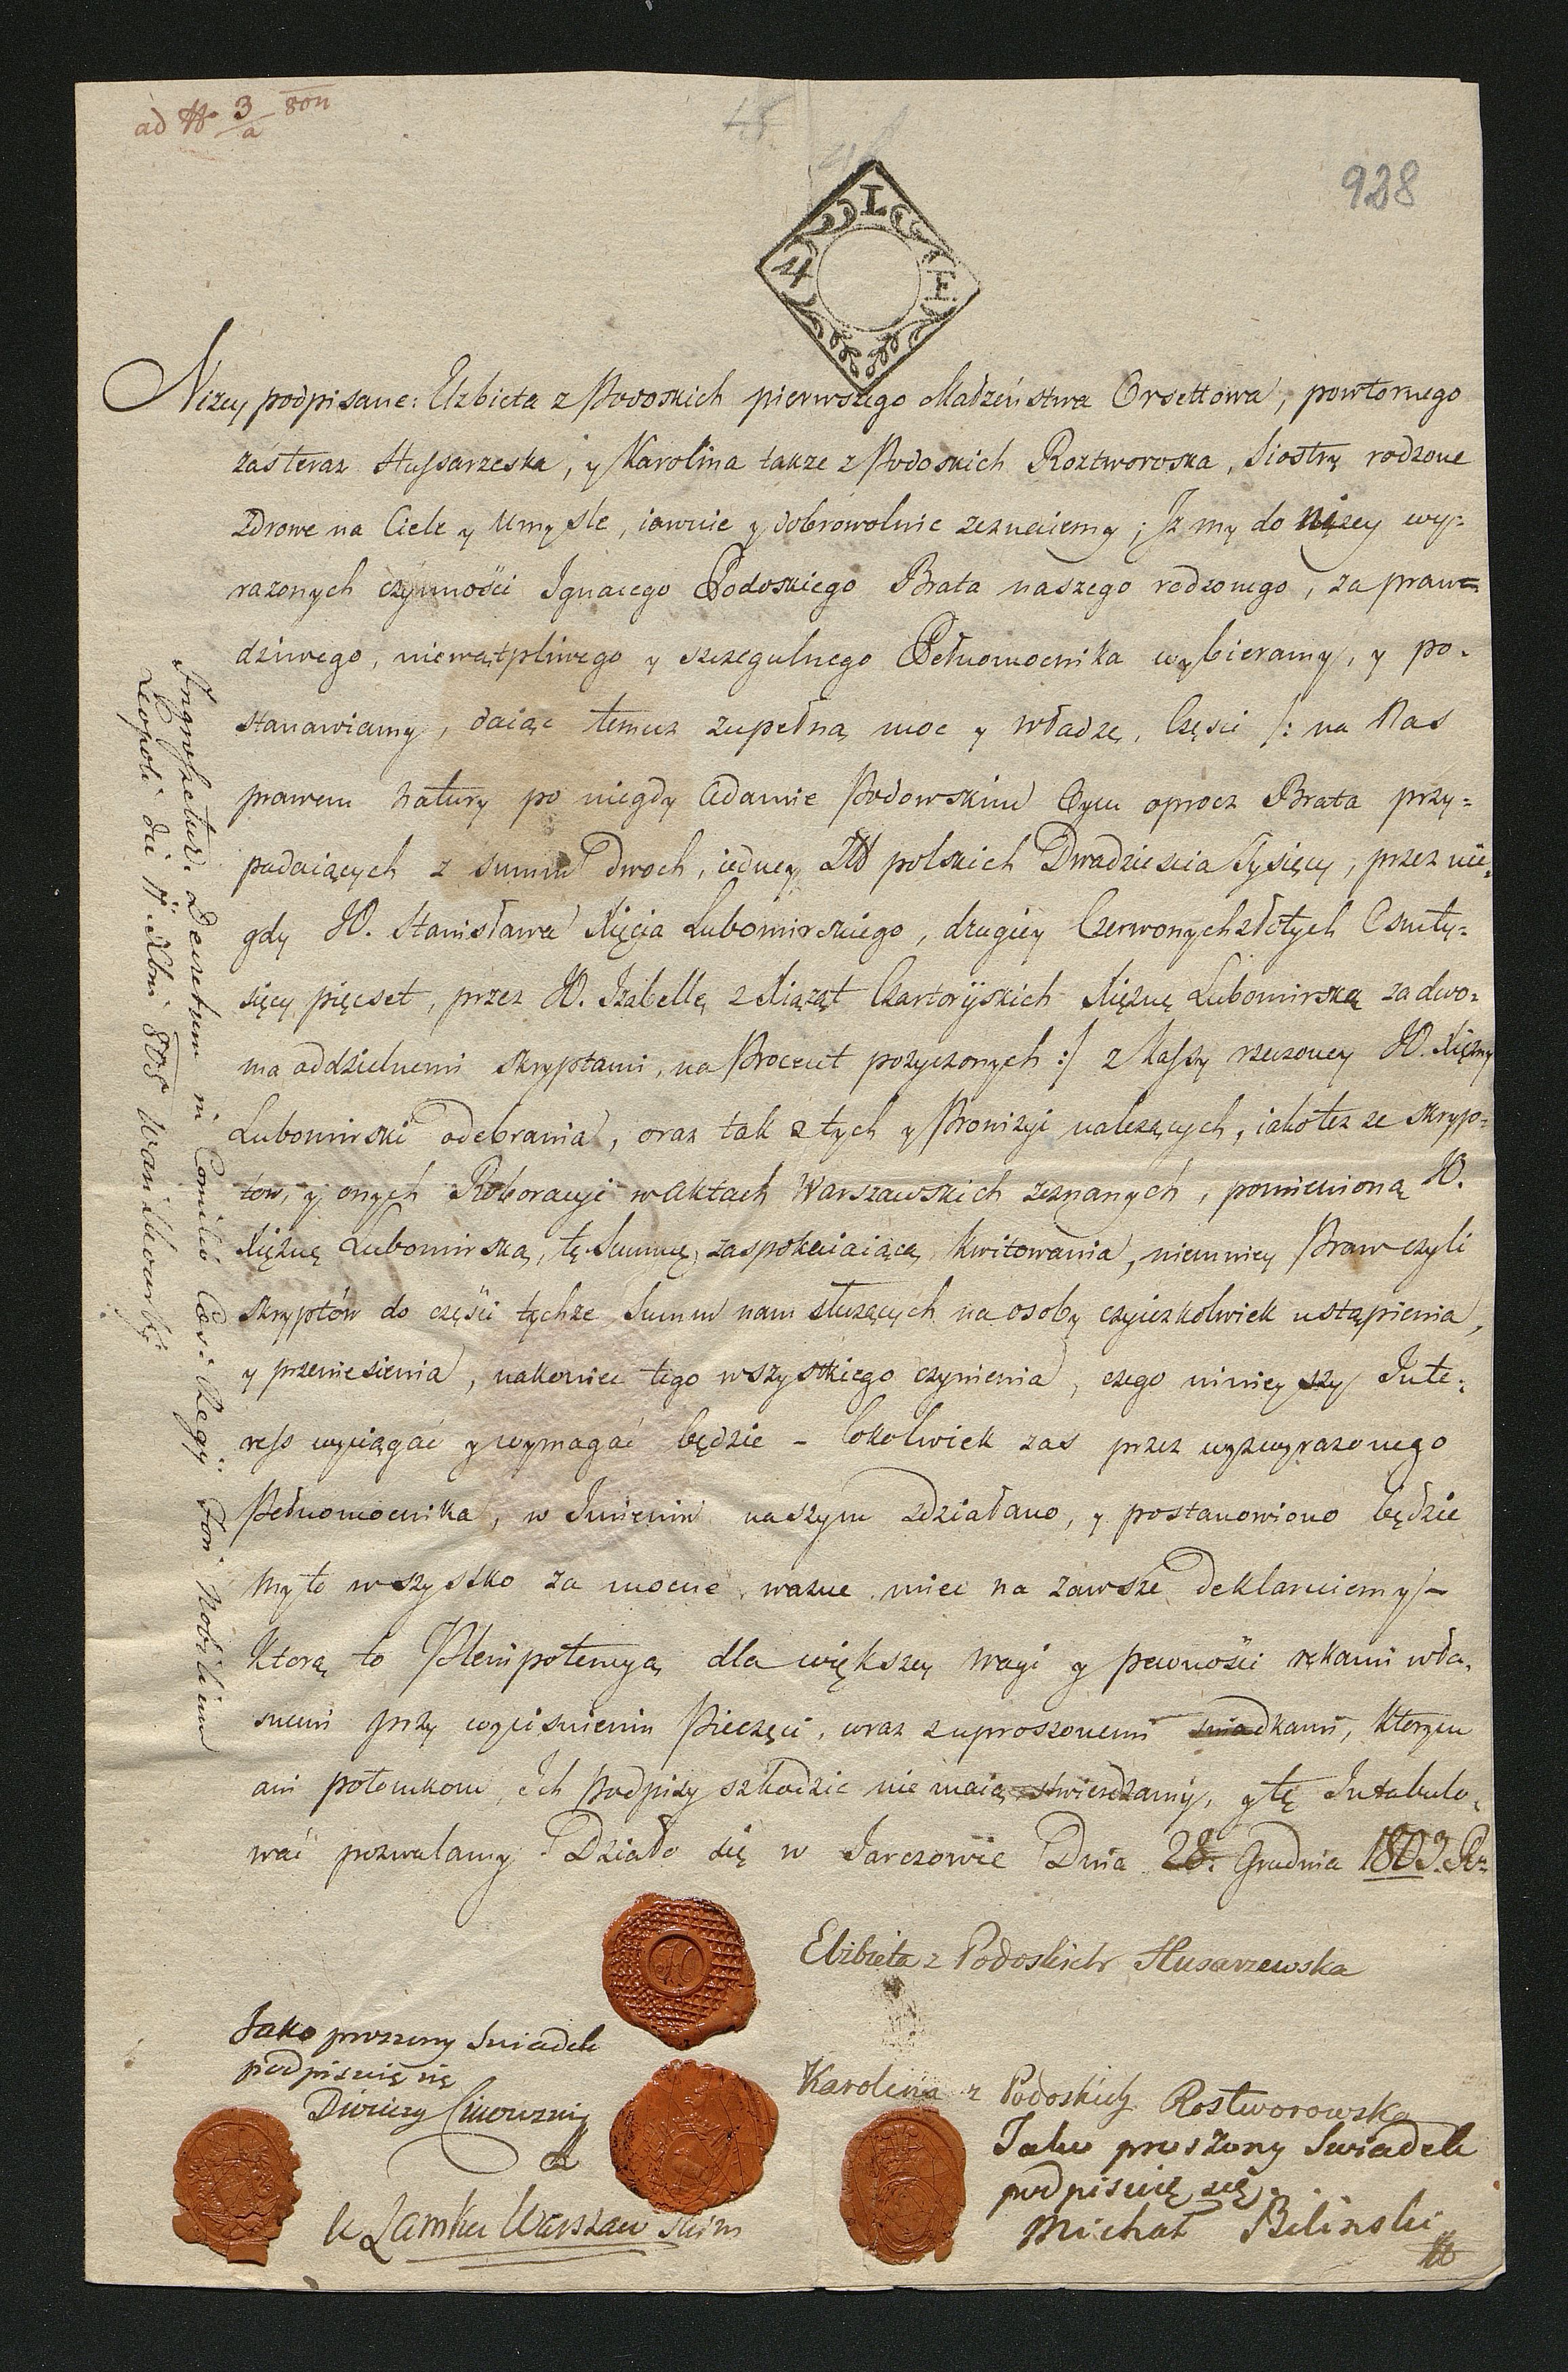 ad N 3/a 80n
48
928
L
4 E
Niżey podpisane: Elżbieta z Podoskich pierwszego Małżeństwa Orsettowa, powtornego
zaś teraz Hussarzeska, y Karolina także z Podoskich Roztworoska, Siostry rodzone
Zdrowe na Ciele y Umyśle, iawnie y dobrowolnie zeznaiemy; Jż my do niżey wy=
rażonych czynności Ignacego Podoskiego Brata naszego rodzonego, za praw=
dziwego, niewątpliwego y szczegulnego Pełnomocnika wybieramy, y po=
stanawiamy, daiąc temuż zupełną moc y władzę, Części /: na Nas
prawem natury po niegdy Adamie Podowskim Oycu oprocz Brata przy=
padaiących z summ dwoch, iedney Zł polskich Dwadzieścia Tysięcy, przez nie=
gdy JO. Stanisława Xięcia Lubomirskiego, drugiey Czerwonych złotych Osmty=
sięcy pięcset, przez JO. Izabellę z Xiążąt Czartoryskich Xiężnę Lubomirską za dwo=
ma oddzielnemi skryptami, na Procent pożyczonych :/ z Massy rzeczoney JO. Xiężny
Lubomirski odebrania, oraz tak z tych y Prowizyi należących, iakoteż ze skryp=
tow, y onych Roboracyi w Aktach Warszawskich zeznanych, pomienioną JO.
Xiężnę Lubomirską, tę Summę zaspokaiaiącą kwitowania, niemniey Praw czyli
skryptów do części tychże Summ nam służących na osoby czyieżkolwiek ustąpienia,
y przeniesienia, nakoniec tego wszystkiego czynienia, czego ninieyszy Inte=
ress wyciągać y wymagać będzie - Cokolwiek zas przez wyżwyrażonego
Pełnomocnika, w Imieniu naszym zdziałano, y postanowiono będzie
my to wszystko za mocne, ważne miec na zawsze deklaruiemy -
Ktorą to Plenipotencyą dla większey wagi y pewności rękami wła=
snemi przy wyciśnieniu Pieczęci, wraz z uproszonemi swiadkami, ktorym
ani potomkom Ich podpisy szkodzic nie maią stwierdzamy, y tę Intabulo=
wać pozwalamy. Działo się w Jarczowie Dnia 28. Grudnia 1803. R=
Elżbieta z Podoskich Husarzewska
Jako proszony Swiadek
podpisuię się
Karolina z Podoskich Rostworowska
Jako proszony Swiadek
podpisuię się.
Michał Biliński
w Zamku Warszawskim
Ingrossetur. Decretum in Consilio Caes: Regij: Fori Nobilium
Leopoli die